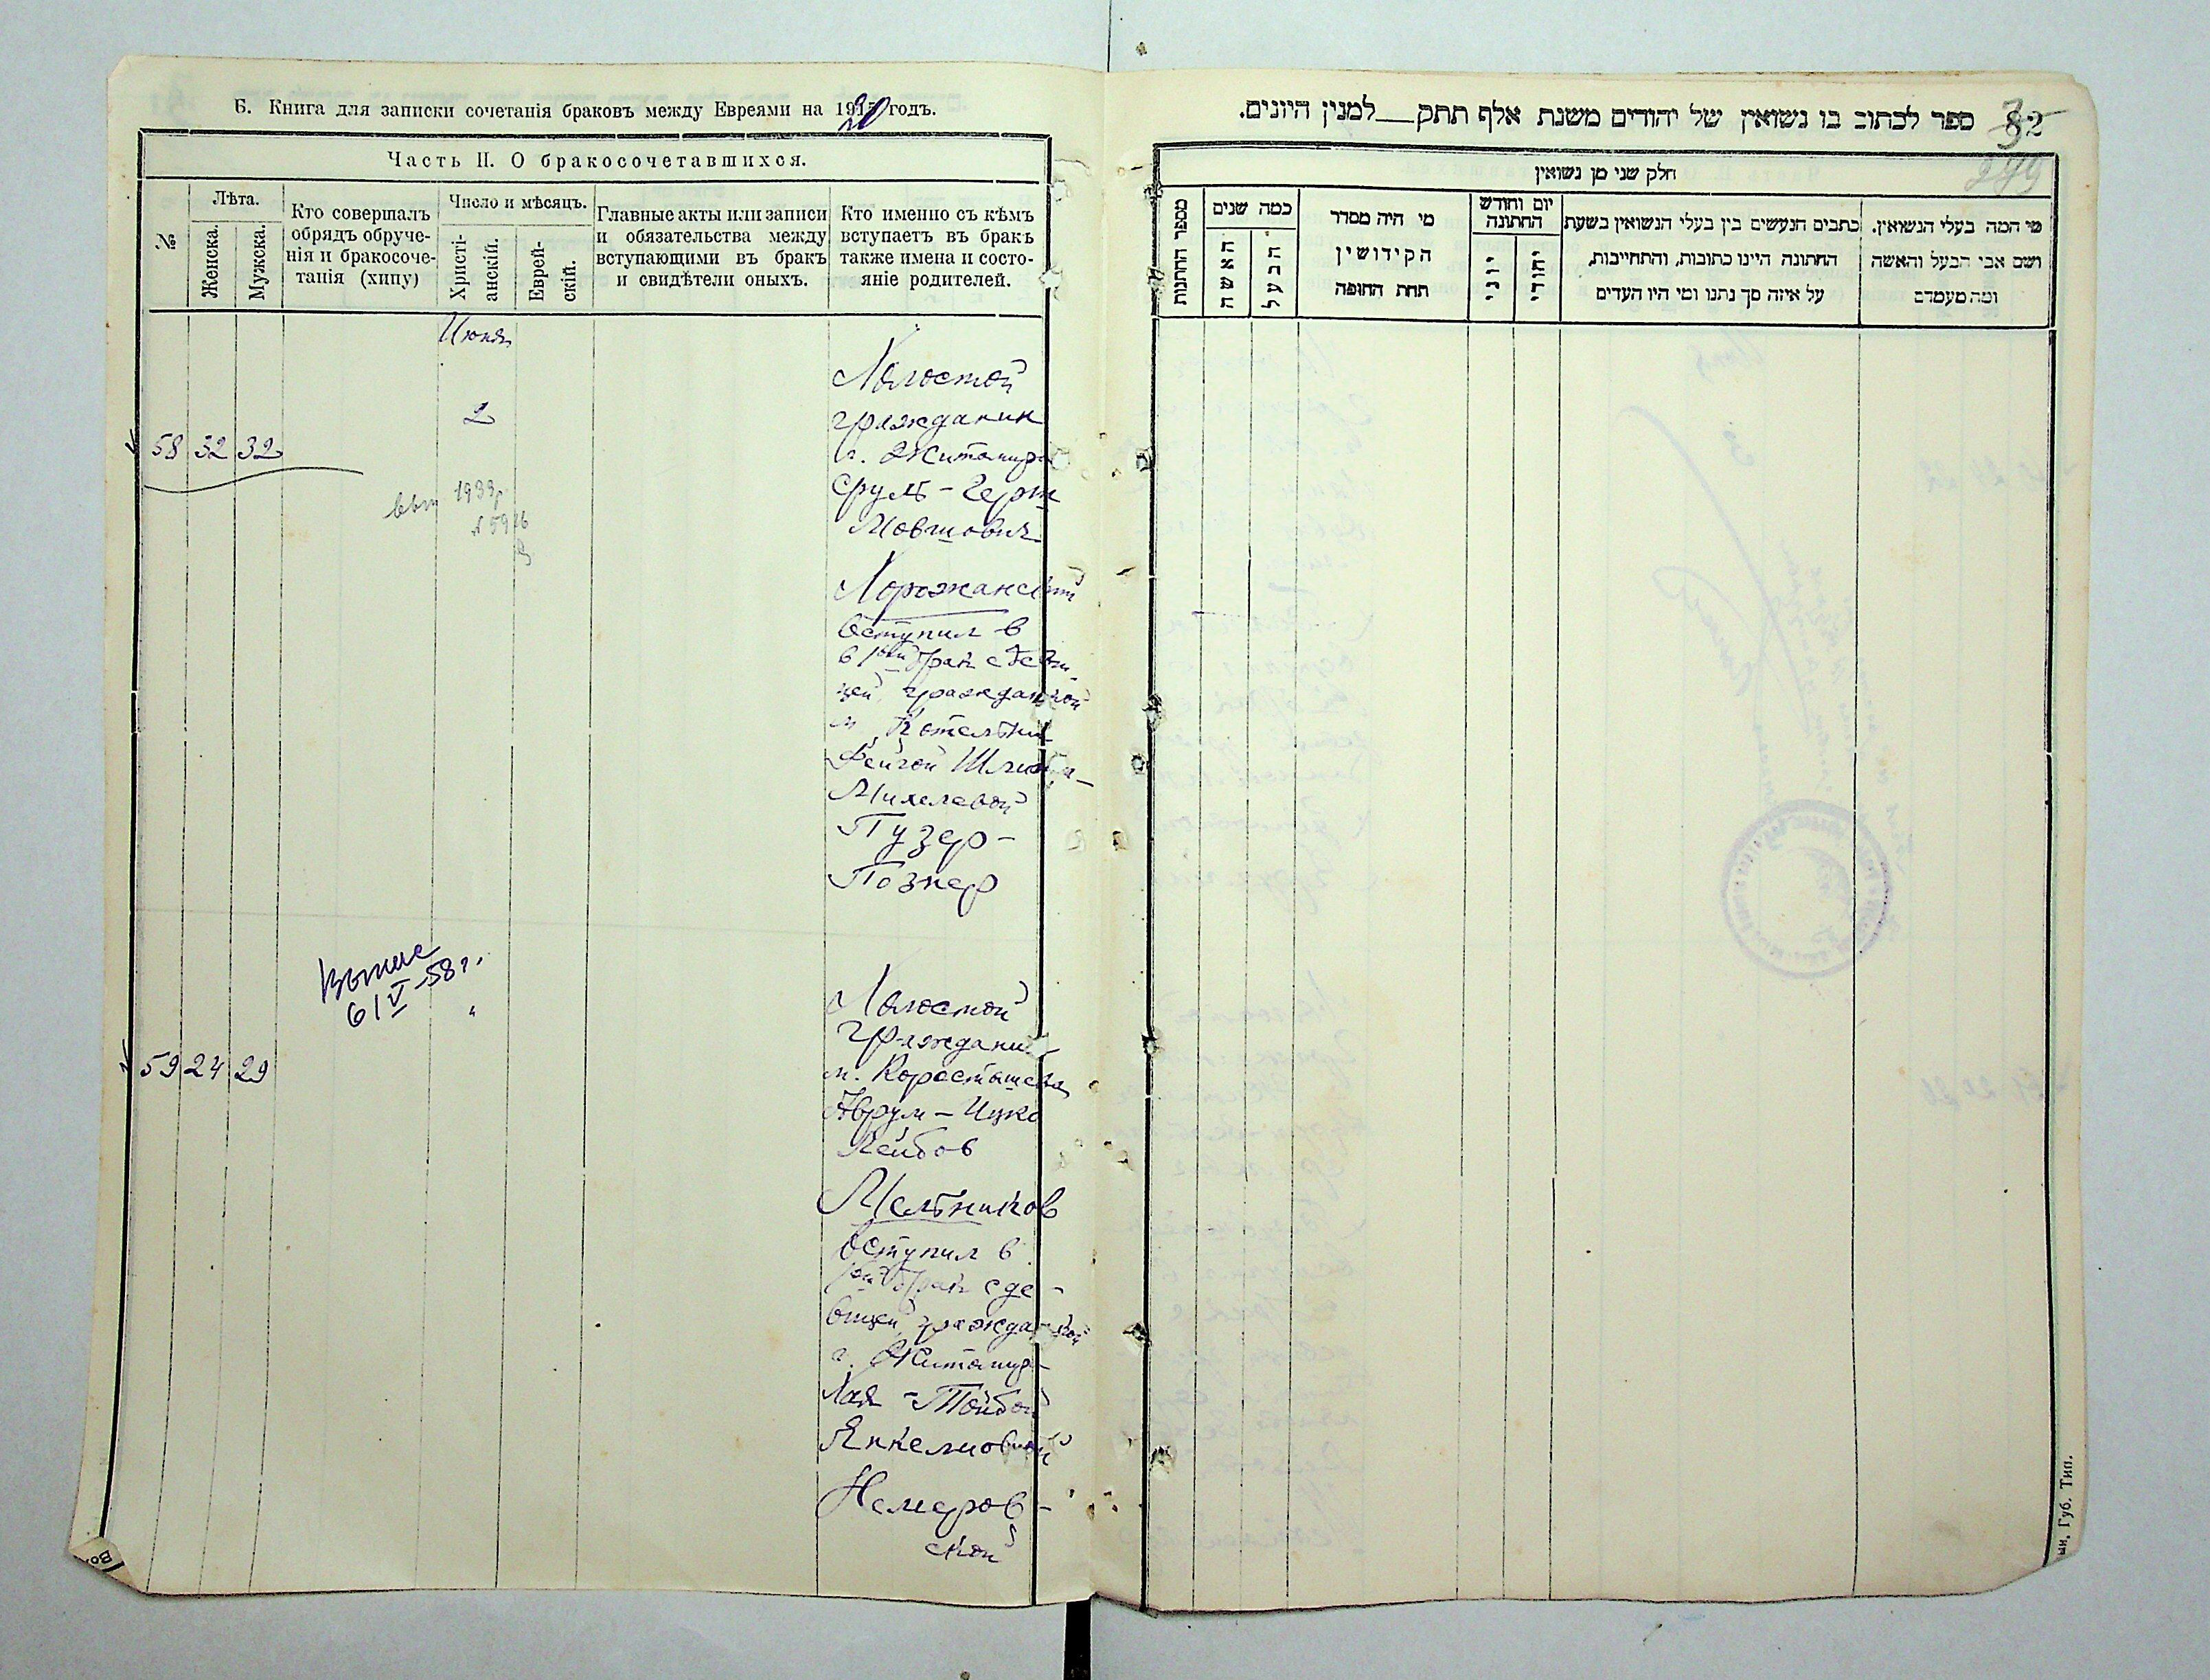 Б. Книга для записки сочетанія браковъ между Евреями на 1920 годъ.
Часть II. О бракосочетавшихся.
№
Лѣта.
Женска.
Мужска.
Кто совершалъ
обрядъ обруче-
нія и бракосоче-
танія (хипу)
Число и мѣсяцъ.
Христі-
анскій.
Еврей-
скій.
Главные акты или записи
и обязательства между
вступающими въ бракъ
и свидѣтели оныхъ.
Кто именно съ кѣмъ
вступаетъ въ бракъ
также имена и состо-
яніе родителей.
Июня
58 32 32
2
1933г
Холостой
гражданин
г. Житомира
Сруль-Герш
Мовшович
Хорожанский
вступил в
в 1ый брак с деви-
цей гражданкой
м. Котельни
Фейгой Шлима-
Михелевой
Пузер-
Познер
Выпис
6/V-58 г.
59 24 29
"
Холостой
гражданин
м. Коростышева
Аврум-Ицко
Лейбов
Мельников
вступил в
1ый брак с де-
вицей гражданкой
г. Житомира
Хая-Тойбой
Янкелиовной
Немеров-
ской
ספר לכתוב בו נשואין של יהודים משנת אלף תתק__למנין היונים.
32
299
חלק שני מן נשואין
מספר החתנות
כמה שנים
האשה
הבעל
מי היה מסדר
הקידושין
תחת החופה
יום וחודש
החתונה
יוני
יהודי
כתבים הנעשים בין בעלי הנשואין בשעת
החתונה היינו כתובות, והתחייבות,
על איזה סך נתנו ומי היו העדים
מי המה בעלי הנשואין.
ושם אבי הבעל והאשה
ומה מעמדם
ын. Губ. Тип.
Во